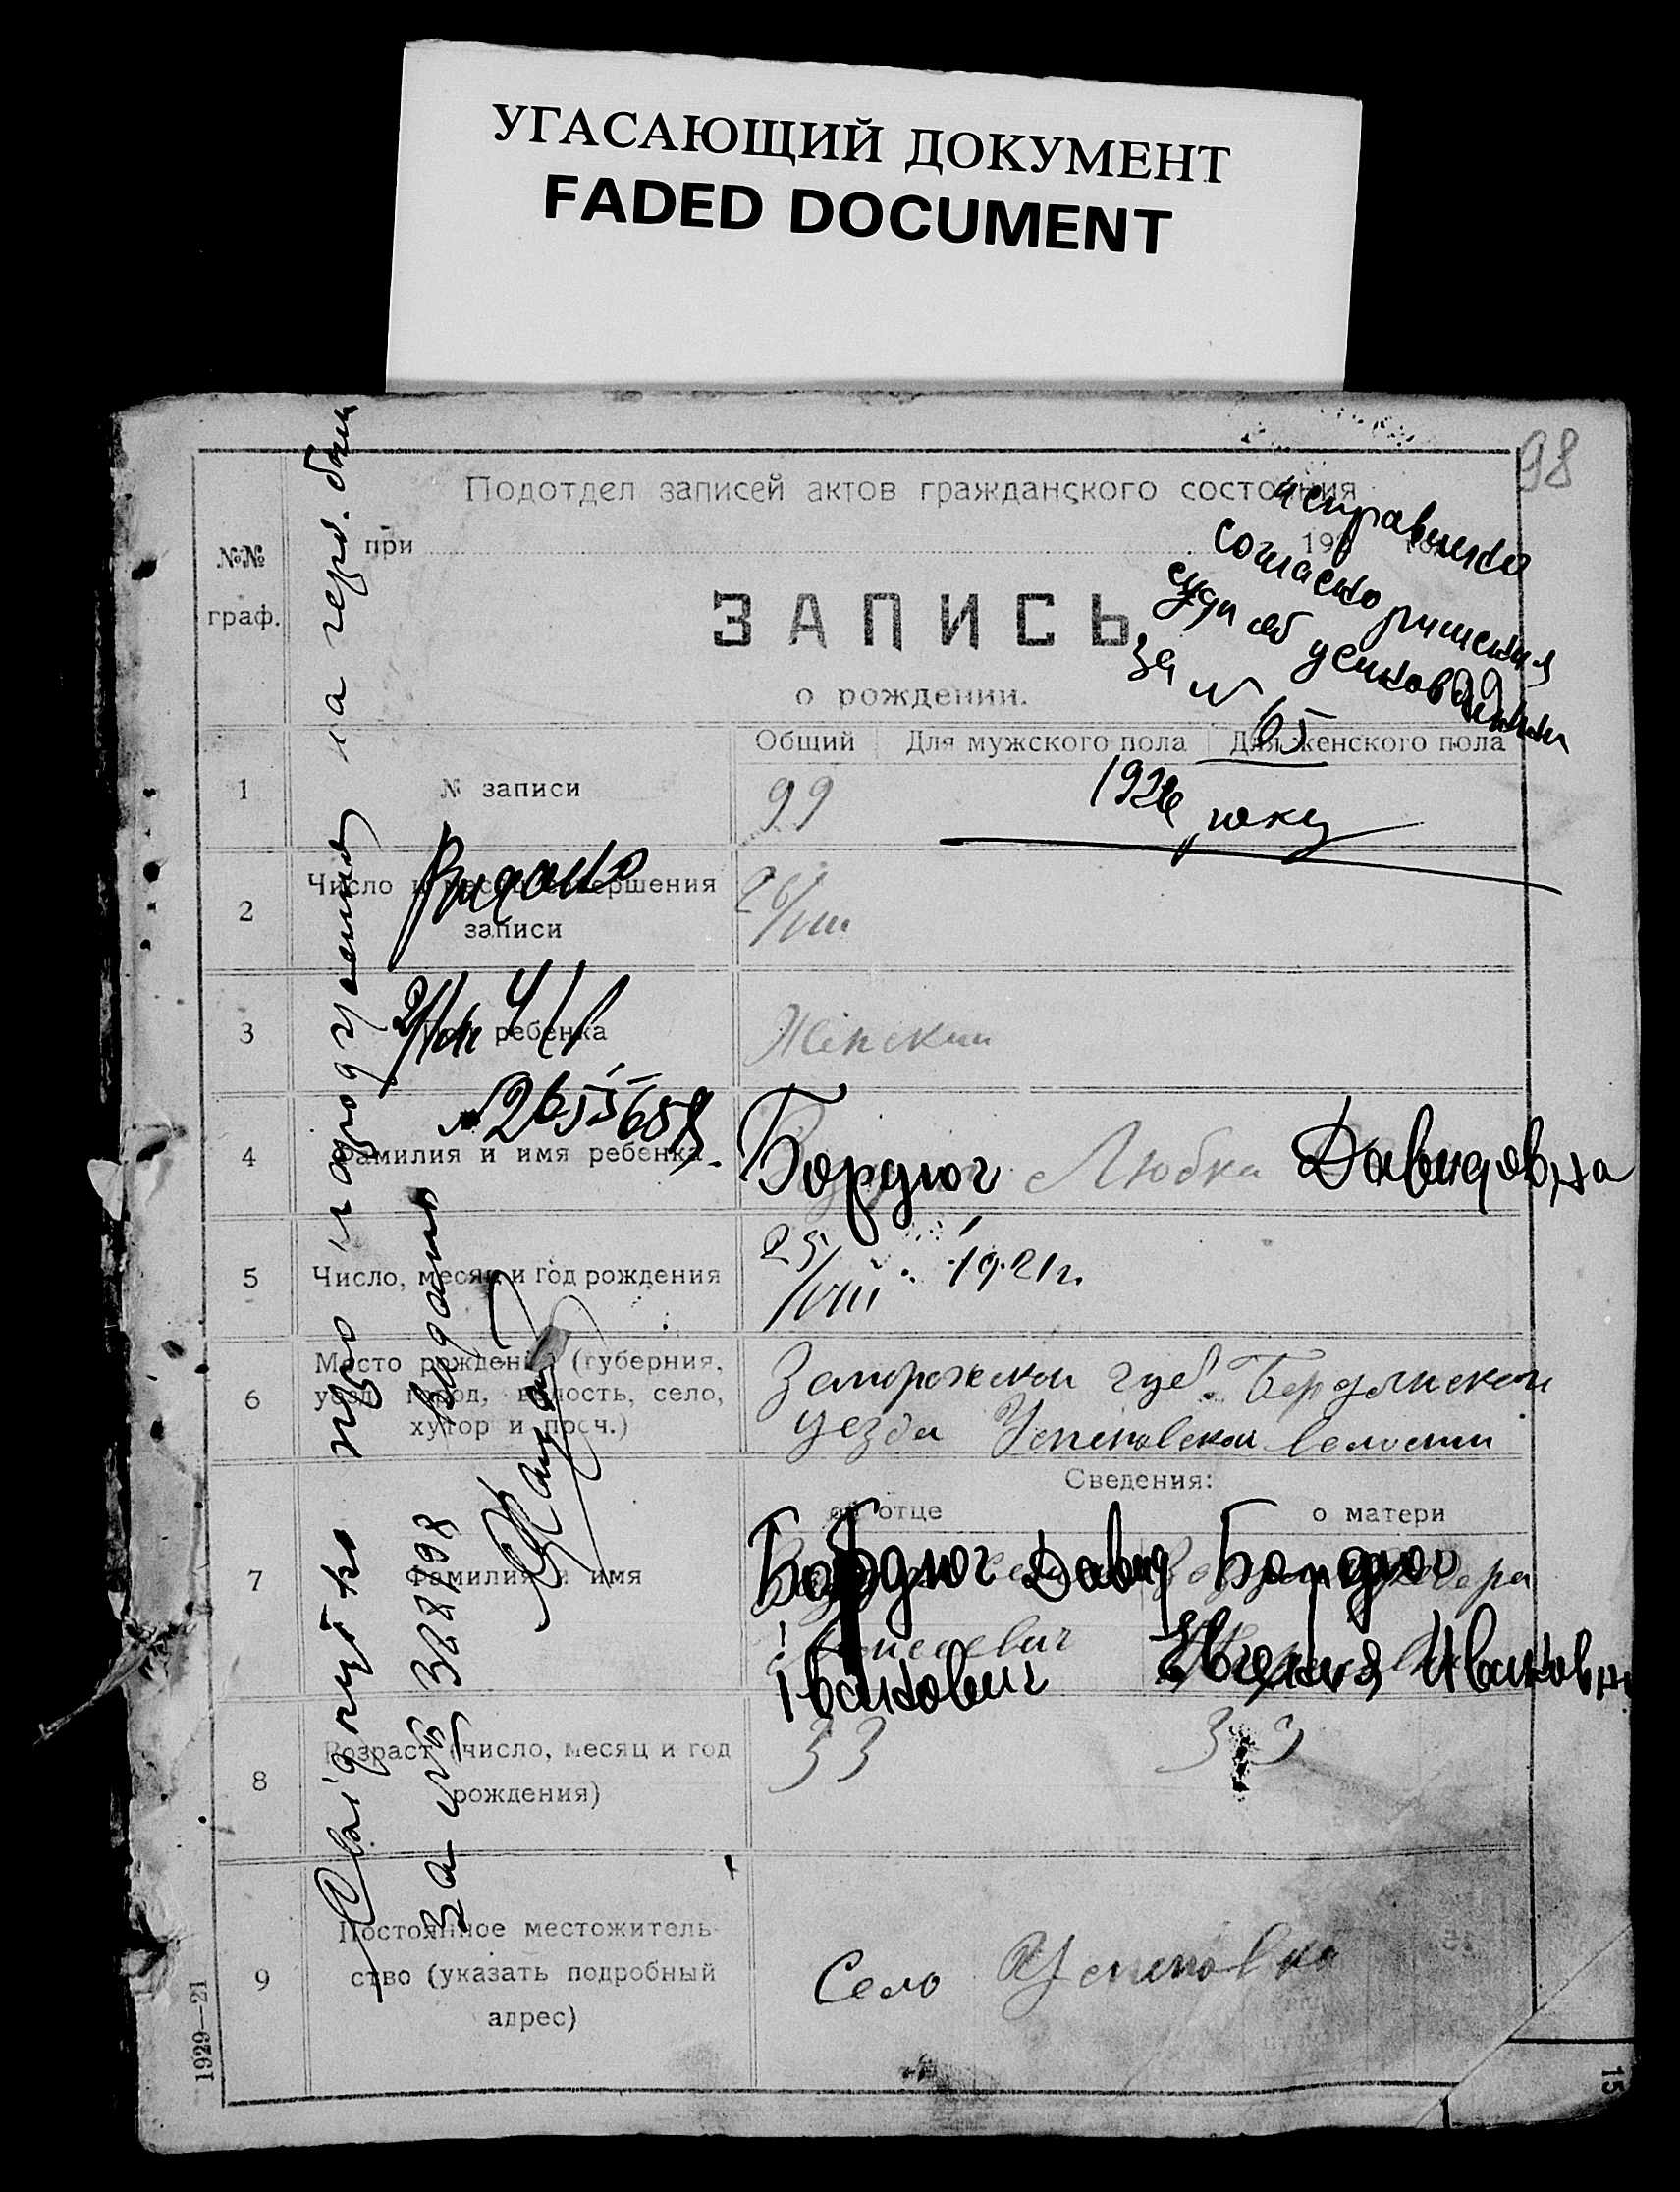 УГАСАЮЩИЙ ДОКУМЕНТ
FADED DOCUMENT
98
Подотдел записей актов гражданского состояния
при 192
№№
граф.
ЗАПИСЬ
о рождении.
исправлено
согласно решения
суда об усыновлении
за № 65
192 року
Общий Для мужского пола Для женского пола
1 № записи 99
2 Число и место совершения
записи
26/VIII
Видано
3 Пол ребенка Женский
№ 265565
4 Фамилия и имя ребенка Бордюг Любка Давидовна
5 Число, месяц и год рождения 25/VIII 1921г.
6 Место рождения (губерния,
уезд, город, волость, село,
хутор и проч.)
Запорожской губ. Бердянской
уезда Успеновской волости
Сведения:
об отце о матери
7 Фамилия и имя
Бордюг Давид Бордюг
Іванович Ивановна
8 Возраст (число, месяц и год
рождения)
33 33
9 Постоянное местожитель-
ство (указать подробный
адрес)
Село Успеновка
Свідоцтво про народження
видано
за № 368798
1929—21
15